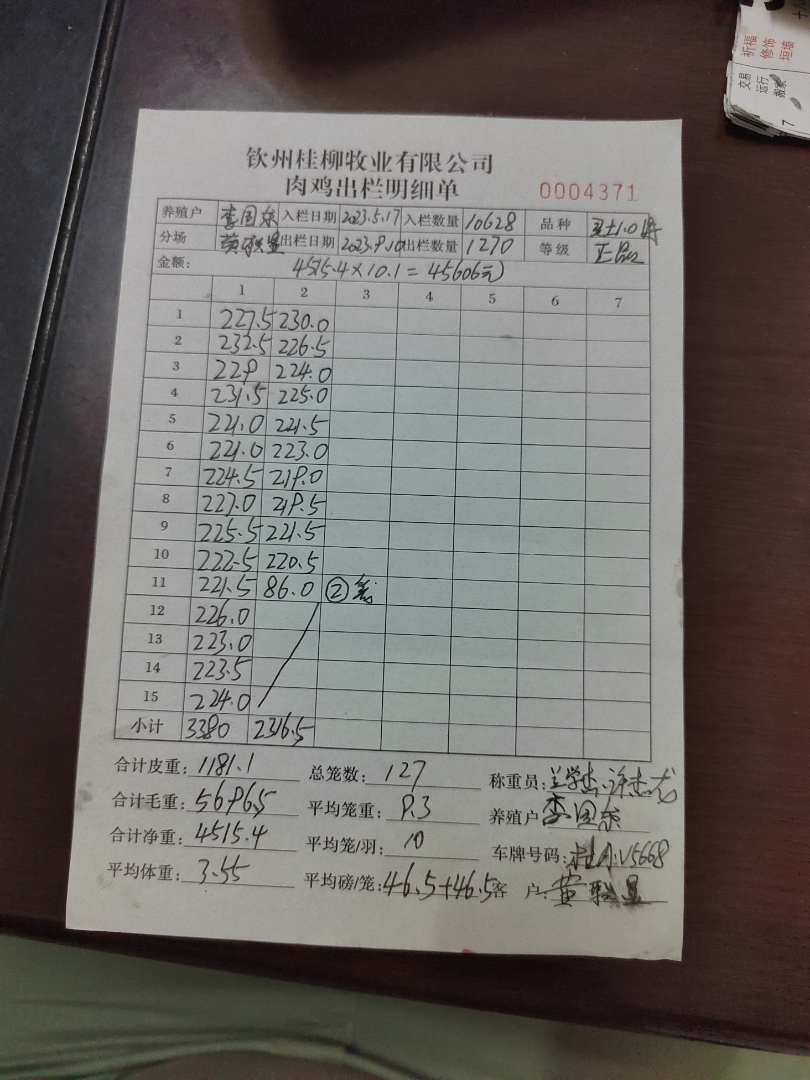 祈福
修饰
垣墙
交易
运行
搬家
7
钦州桂柳牧业有限公司
肉鸡出栏明细单
0004371
养殖户 李国东 入栏日期 2023.5.17 入栏数量 10628 品种
分场 黄联显 出栏日期 2023.9.10 出栏数量 1270 等级 正品
金额: 4515.4×10.1=45606元
1 2 3 4 5 6 7
1 227.5 230.0
2 232.5 226.5
3 229 224.0
4 231.5 225.0
5 221.0 221.5
6 221.0 223.0
7 224.5 219.0
8 227.0 219.5
9 225.5 221.5
10 222.5 220.5
11 221.5 86.0 ②
12 226.0
13 223.0
14 223.5
15 224.0
小计 3380 2316.5
合计皮重: 1181.1 总笼数: 127 称重员:
合计毛重: 5696.5 平均笼重: 9.3 养殖户 李国东
合计净重: 4515.4 平均笼/羽: 10 车牌号码: 桂A:V5668
平均体重: 3.55 平均磅/笼: 46.5+46.5 客户: 黄联显